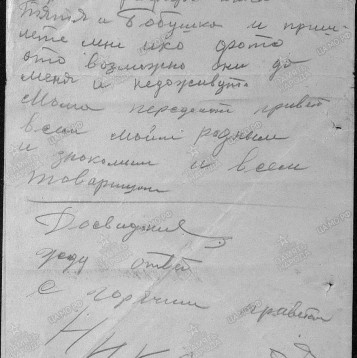 Тятя и Бабушка и приш-
лете мне ихо фото
ото возможно они до
меня и недоживут.
Мама передает привет
всем моим родным
и знакомим и всем
товарищам
Досвидания
жду ответ
с горячим приветом